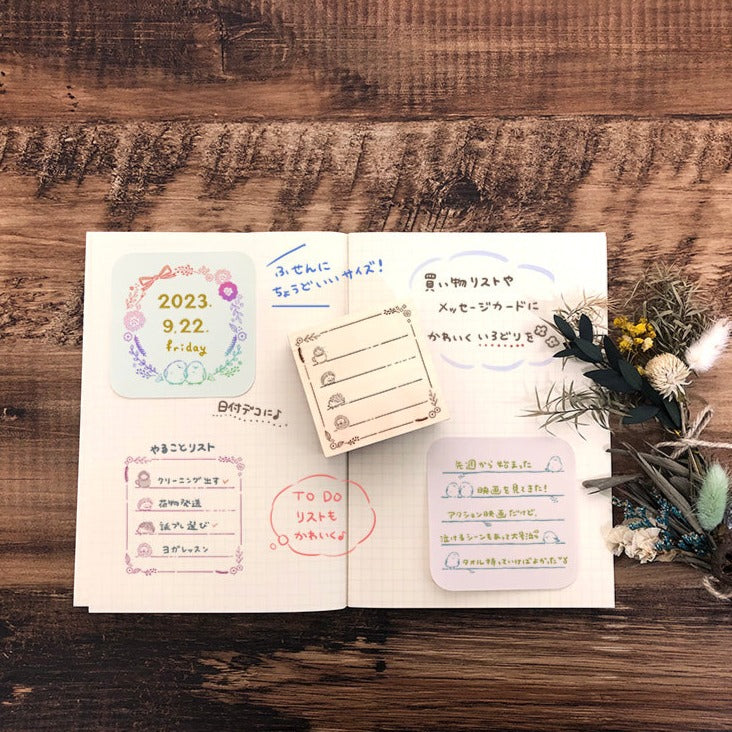 2023.
9.22.
friday
ふせんに
ちょうどいいサイズ!
日付デコに♪
やることリスト
クリーニング出す✓
荷物発送
誕プレ選び✓
ヨガレッスン
TO DO
リストも
かわいく♪
買い物リストや
メッセージカードに
かわいくいろどりを
先週から始まった
映画を見てきた!
アクション映画だけど、
泣けるシーンもあって大号泣
タオル持っていけばよかった